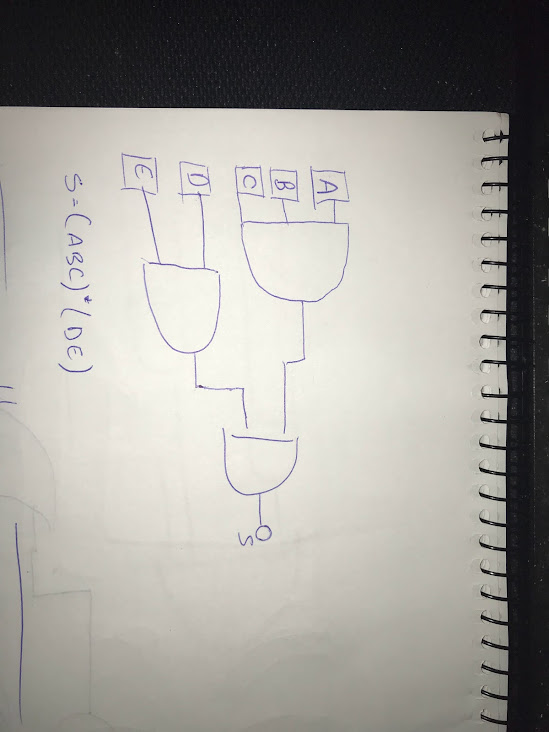 A
B
C
D
E
S
S = (ABC)*(DE)